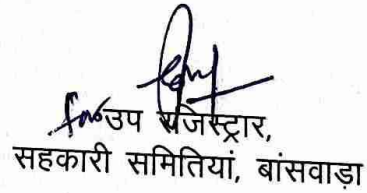 for उप रजिस्ट्रार,
सहकारी समितियां, बांसवाड़ा